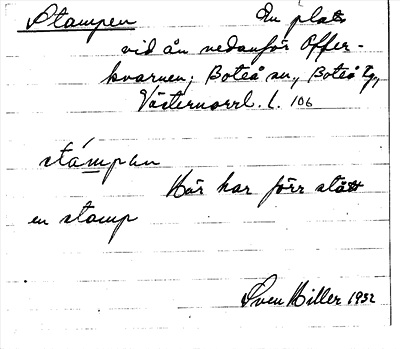 Stampen En plats
vid ån nedanför Offer-
kvarnen, Boteå sn, Boteå tg,
Västernorrl. l. 106
stámpan
Här har förr stått
en stamp
Sven Hiller 1932